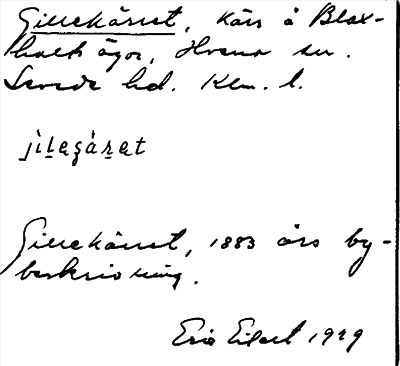 Gillekärret, Kärr å Blax-
hults ägor, Hvena sn.
Sevede hd. Klm. l.
jìlegàret
Gillekärret, 1883 års by-
beskrivning.
Eilert 1929